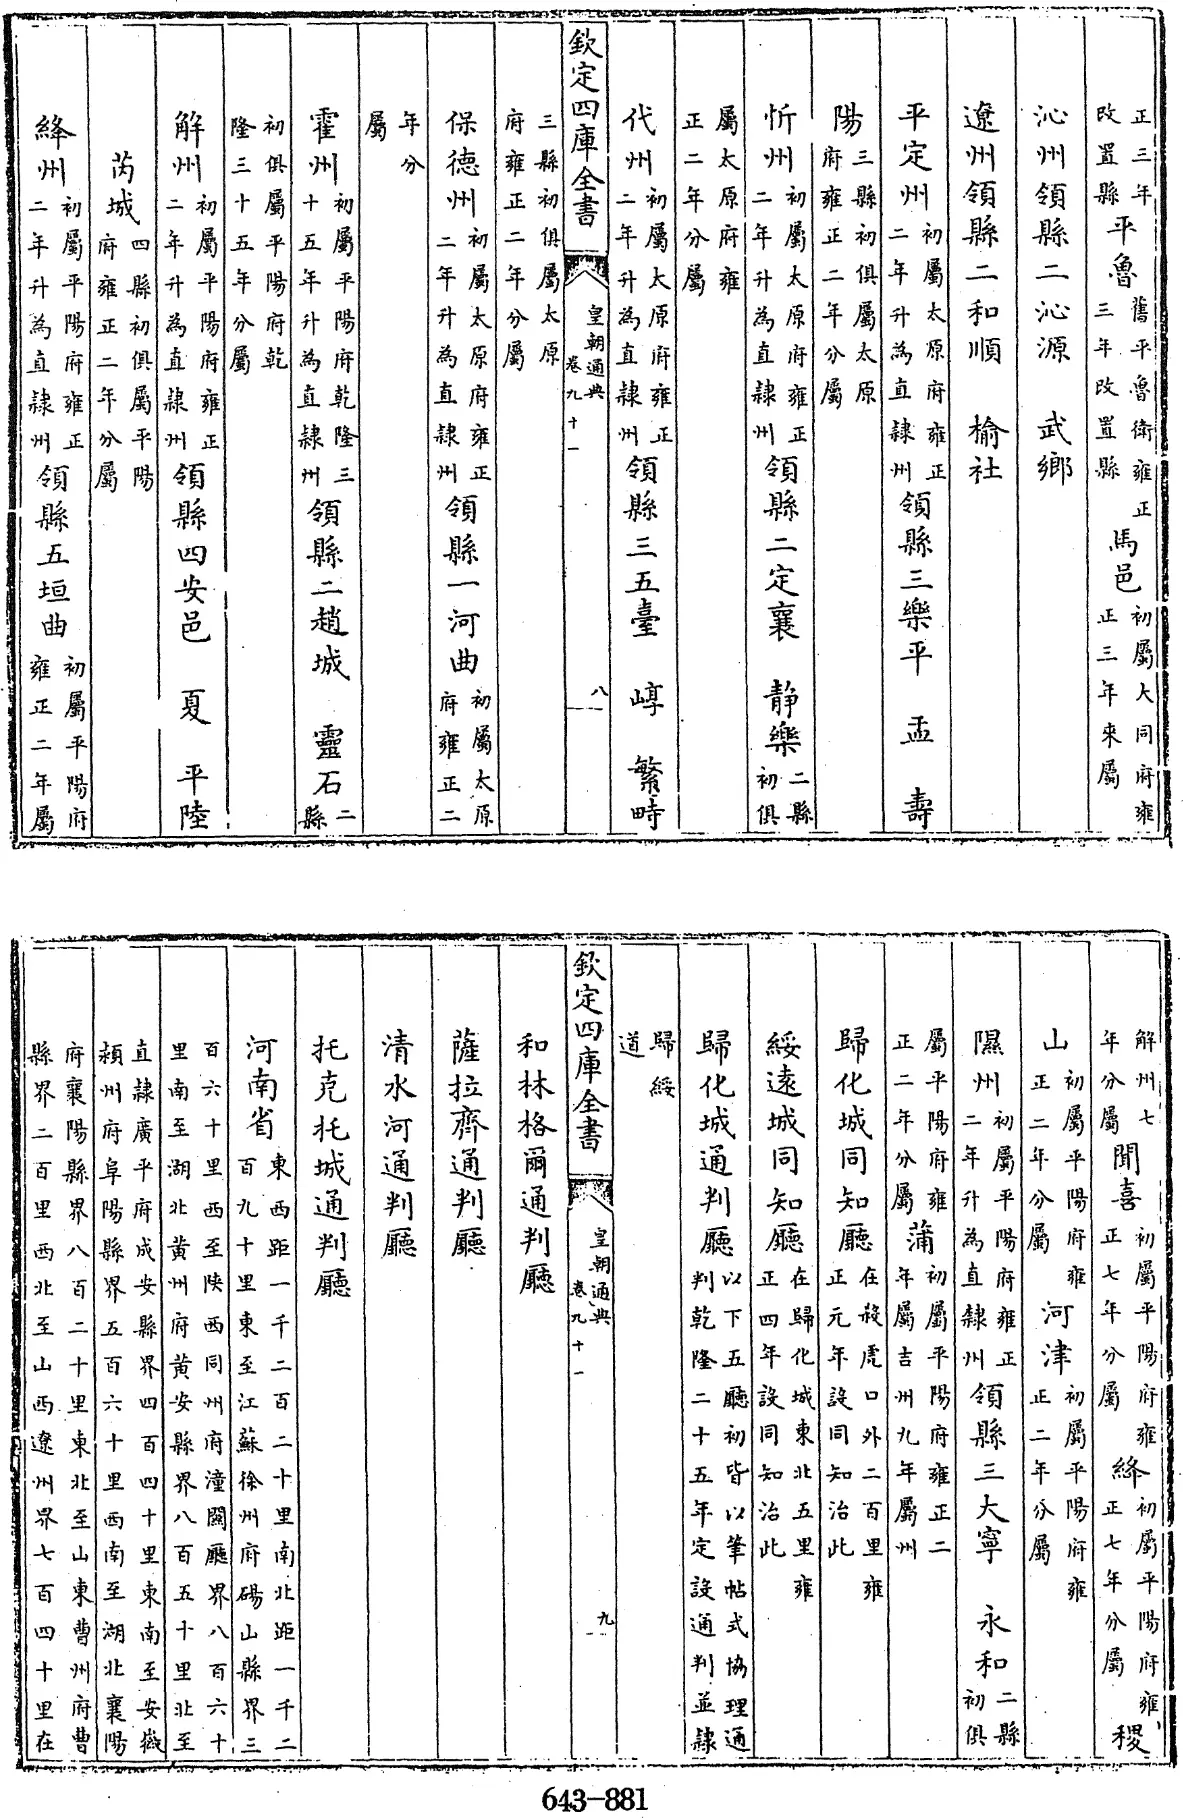 正三年改置縣平魯舊平魯衛雍正三年改置縣馬邑初屬大同府雍正三年來屬
沁州領縣二沁源 武鄉
遼州領縣二和順 榆社
平定州初屬太原府雍正二年升為直隸州領縣三樂平 盂 壽
陽三縣初俱屬太原府雍正二年分屬
忻州初屬太原府雍正二年升為直隸州領縣二定襄 靜樂二縣初俱
屬太原府雍正二年分屬
代州初屬太原府雍正二年升為直隸州領縣三五臺 崞 繁畤
欽定四庫全書 皇朝通典 卷九十一 八
三縣初俱屬太原府雍正二年分屬
保德州初屬太原府雍正二年升為直隸州領縣一河曲初屬太原府雍正二
年分屬
霍州初屬平陽府乾隆三十五年升為直隸州領縣二趙城 靈石二縣
初俱屬平陽府乾隆三十五年分屬
解州初屬平陽府雍正二年升為直隸州領縣四安邑 夏 平陸
芮城四縣初俱屬平陽府雍正二年分屬
絳州初屬平陽府雍正二年升為直隸州領縣五垣曲初屬平陽府雍正二年屬
解州七年分屬聞喜初屬平陽府雍正七年分屬絳初屬平陽府雍正七年分屬稷
山初屬平陽府雍正二年分屬河津初屬平陽府雍正二年分屬
隰州初屬平陽府雍正二年升為直隸州領縣三大寧 永和二縣初俱
屬平陽府雍正二年分屬蒲初屬平陽府雍正二年屬吉州九年屬州
歸化城同知廳在殺虎口外二百里雍正元年設同知治此
綏遠城同知廳在歸化城東北五里雍正四年設同知治此
歸化城通判廳以下五廳初皆以筆帖式協理通判乾隆二十五年定設通判並隸
歸綏道
欽定四庫全書 皇朝通典 卷九十一 九
和林格爾通判廳
薩拉齊通判廳
清水河通判廳
托克托城通判廳
河南省東西距一千二百二十里南北距一千二百九十里東至江蘇徐州府碭山縣界三
百六十里西至陝西同州府潼關廳界八百六十里南至湖北黃州府黃安縣界八百五十里北至
直隸廣平府成安縣界四百四十里東南至安徽潁州府阜陽縣界五百六十里西南至湖北襄陽
府襄陽縣界八百二十里東北至山東曹州府曹縣界二百里西北至山西遼州界七百四十里在
643-881